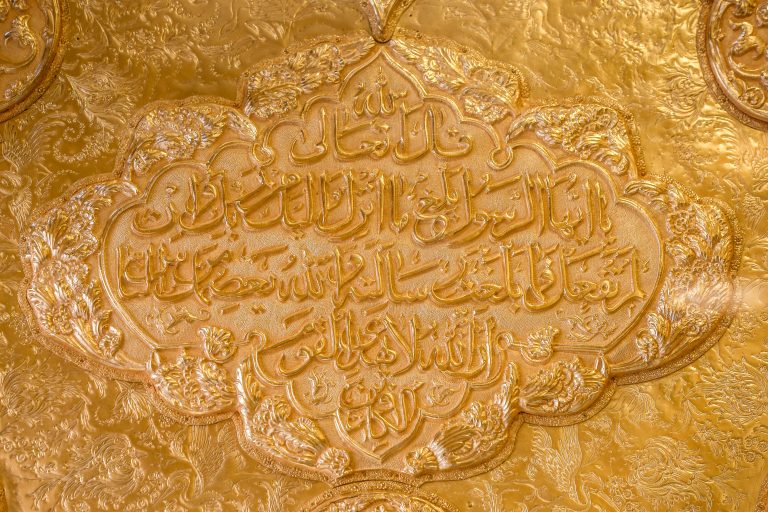 قال الله تعالى
یا ایها الرسول بلغ ما انزل الیک من ربک و ان
لم تفعل فما بلغت رسالته و الله یعصمک من الناس
ان الله لا یهدی القوم
الکافرین